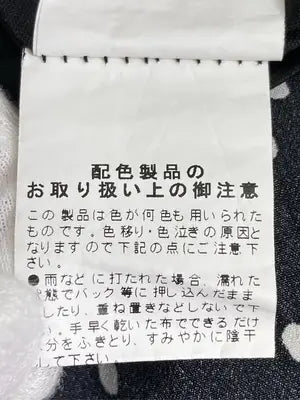 配色製品の
お取り扱い上の御注意
この製品は色が何色も用いられた
ものです。色移り・色泣きの原因と
なりますので下記の点にご注意下
さい。
●雨などに打たれた場合、濡れた
態でバック等に押し込んだまま
したり、重ね置きなどしないで下
い。手早く乾いた布でできるだけ
分をふきとり、すみやかに陰干
して下さい。